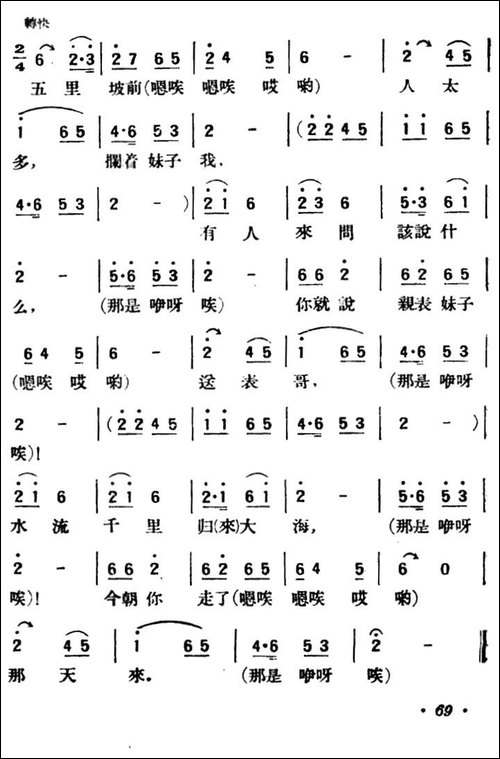 轉快
2/4 6 2·3 | 2 7 6 5 | 2 4 5 | 6 - | 2 4 5 |
五里 坡前(嗯唉 嗯唉 哎 喲) 人太
1 6 5 | 4·6 5 3 | 2 - | (2 2 4 5 | 1 1 6 5 |
多, 攔着 妹子 我.
4·6 5 3 | 2 - ) | 2 1 6 | 2 3 6 | 5·3 6 1 |
有人 來問 該說什
2 - | 5·6 5 3 | 2 - | 6 6 2 | 6 2 6 5 |
么, (那是咿呀 唉) 你就說 親表妹子
6 4 5 | 6 - | 2 4 5 | 1 6 5 | 4·6 5 3 |
(嗯唉 哎 喲) 送表哥, (那是咿呀
2 - | (2 2 4 5 | 1 1 6 5 | 4·6 5 3 | 2 - ) |
唉)!
2 1 6 | 2 1 6 | 2·1 6 1 | 2 - | 5·6 5 3 |
水流 千里 归(來)大 海, (那是咿呀
2 - | 6 6 2 | 6 2 6 5 | 6 4 5 | 6 0 |
唉)! 今朝你 走了(嗯唉 嗯唉 哎 喲)
2 4 5 | 1 6 5 | 4·6 5 3 | 2 - |
那天 來. (那是咿呀 唉)
· 69 ·